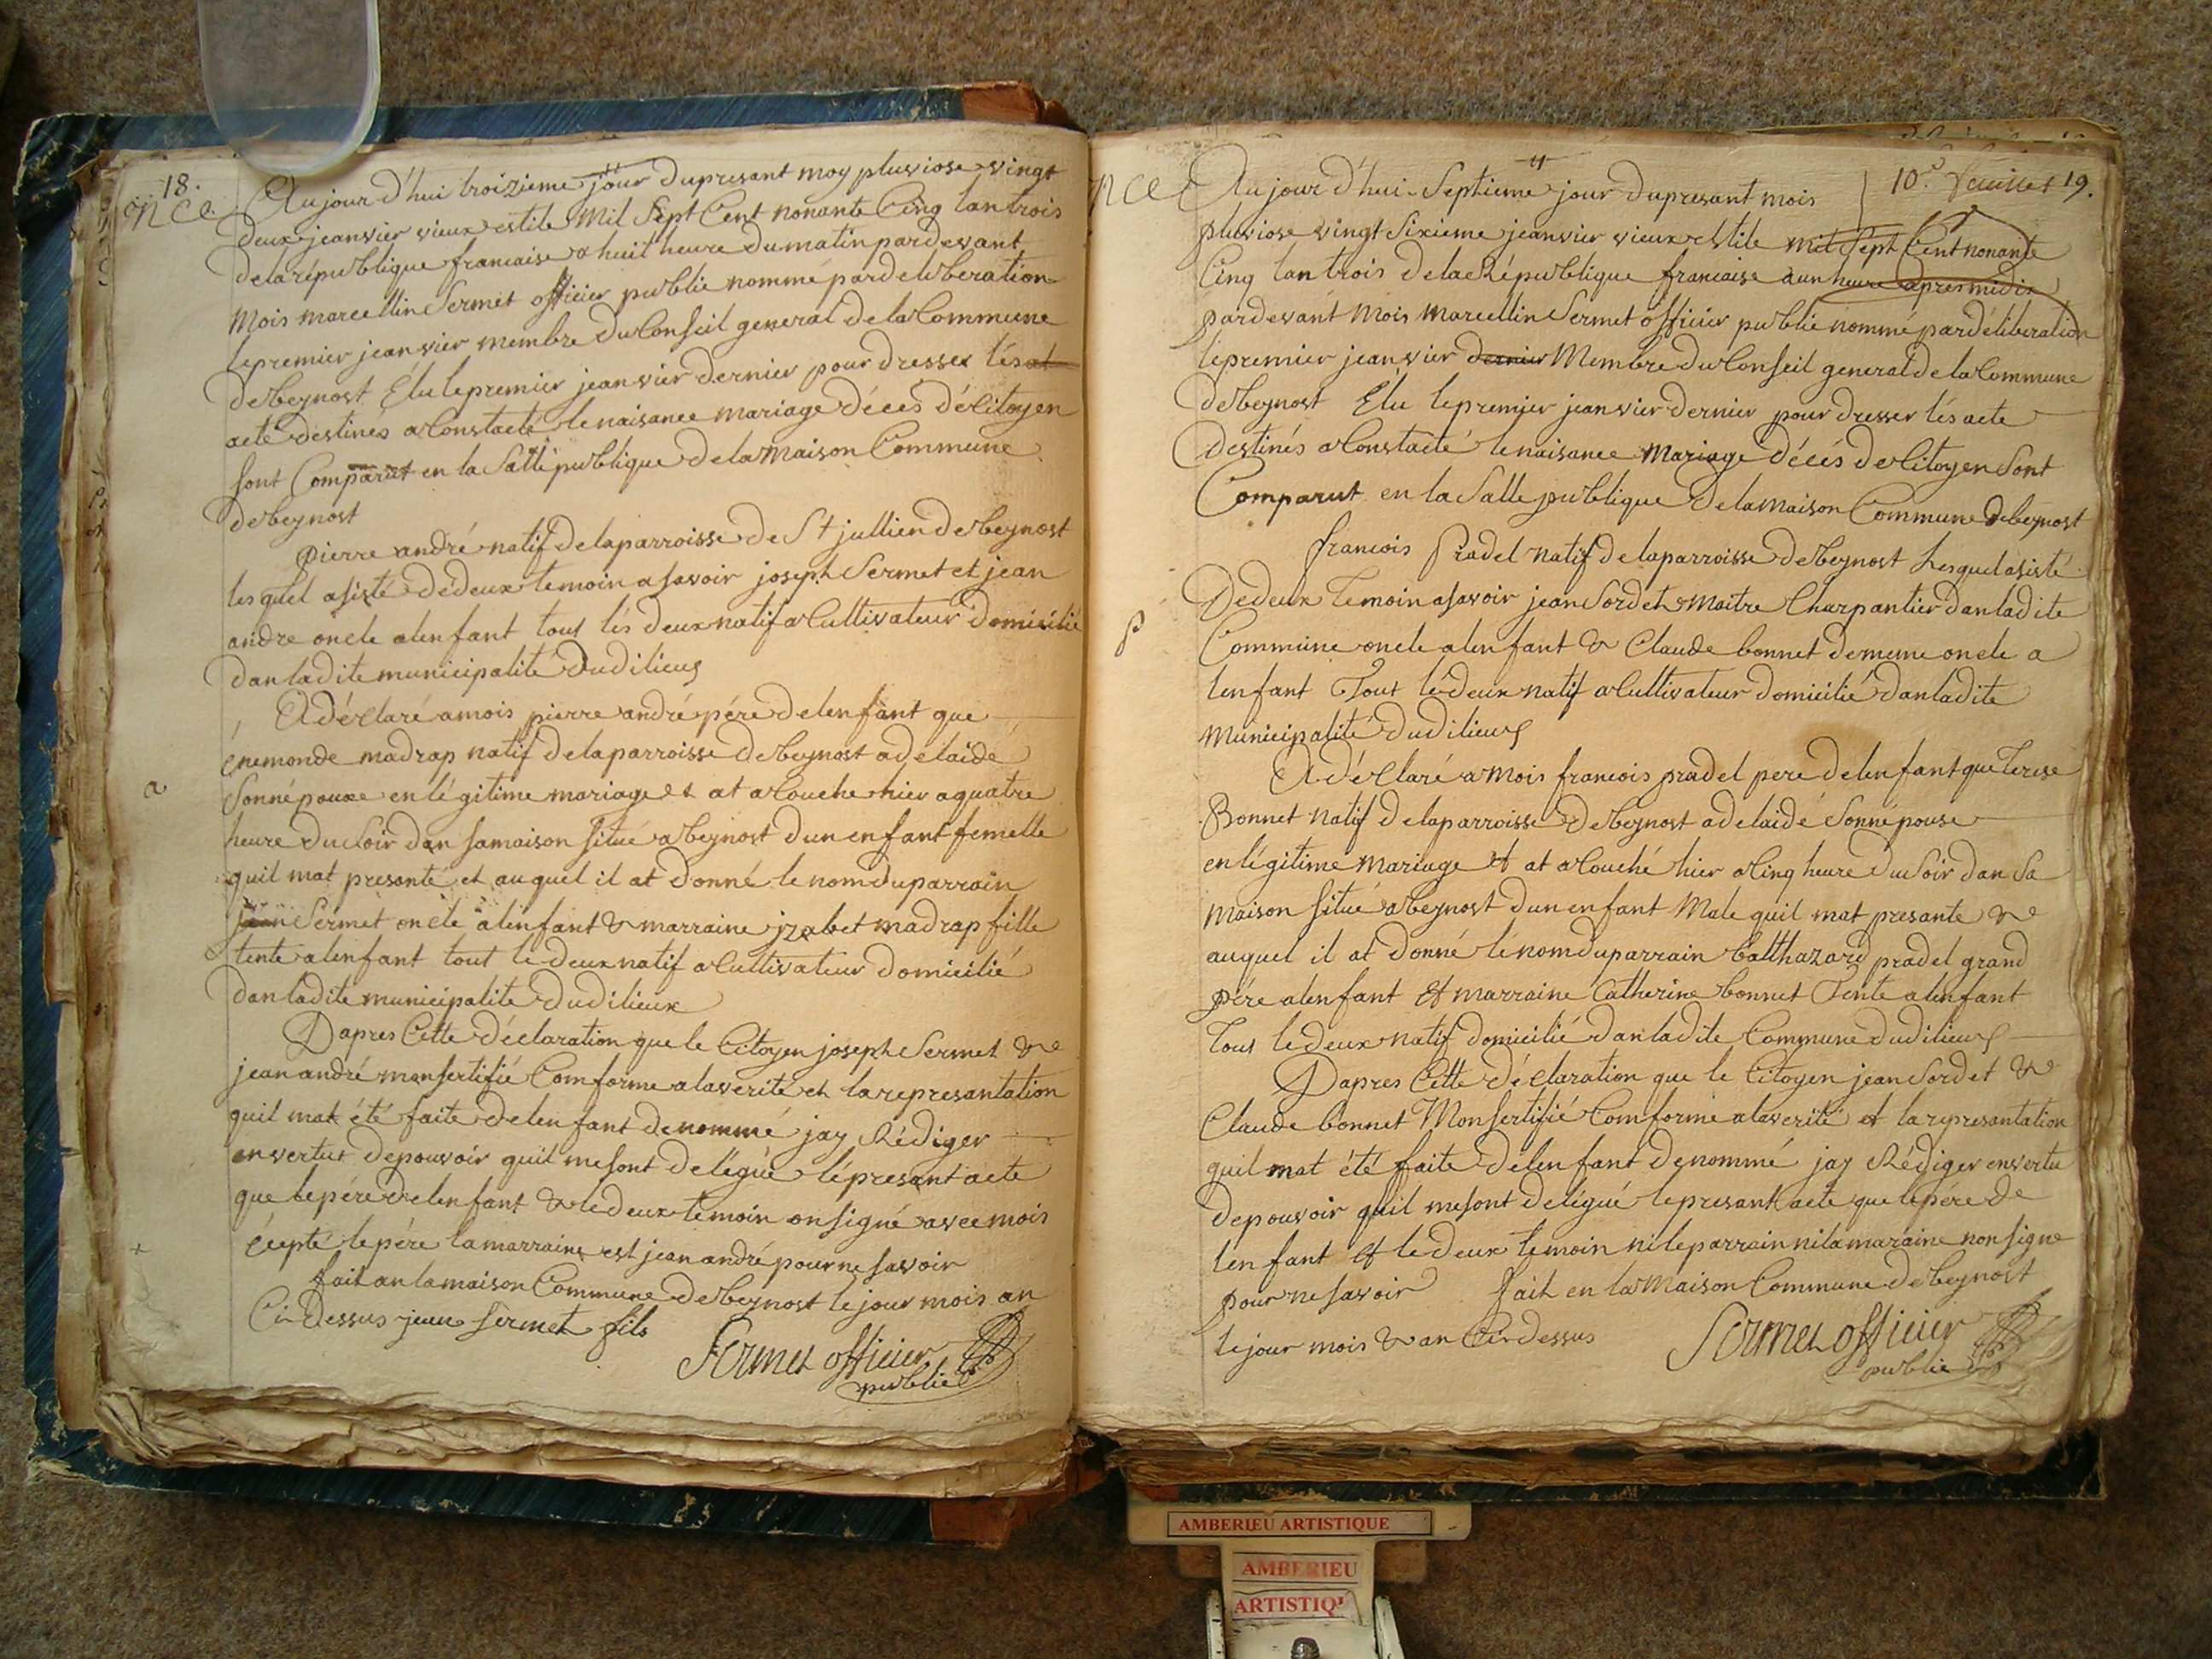 18.
NCe.
Aujourd'hui troizieme jour dupresant moy pluviose vingt
deux jeanvier vieux estile Mil Sept Cent nonante Cinq lan trois
delarépublique francaise a huit heure dumatin pardevant
Mois marcellin Sermet officier public nommé pardeliberation
lepremier jeanvier membre du Conseil general dela Commune
debeynost Élu lepremier jeanvier dernier pour dresser lés at
acte destinés a Constacté lenaisance mariage déces dé Citoyen
sont Comparut en la Salle publique dela maison Commune
debeynost
pierre andré natif delaparroisse de St jullien debeynost
lesquel asisté dédeux temoin asavoir joseph Sermet et jean
andre oncle alenfant tous lés deux natif a Cultivateur domicilié
dan ladite municipalité dudilieux
A déclaré amois pierre andré pére delenfant que
énemonde madrap natif delaparroisse debeynost adelaide
Sonnépouze en légitime mariage et at a Couche hier aquatre
a
heure du Soir dan samaison situé a beynost dun enfant femelle
quil mat presanté et auquel il at donné le nom duparrain
jean Sermet oncle alenfant & marraine jzabet madrap fille
tente alenfant tout le deux natif a Cultivateur domicilié
dan ladite municipalité dudilieux
Dapres Cette déclaration que le Citoyen joseph Sermet &
jean andré monsertifié Comforme alaverité et larepresantation
quil mat été faite delenfant denommé jay Rédiger
en vertut depouvoir quil mesont delégué léprésant acte
que lepére delenfant & le deux temoin on signé avec mois
écepté lepére lamarraine est jean andré pour ne savoir
fait an lamaison Commune debeynost le jour mois an
Cidessus jean sermet fils
Sermet officier
public
NCe
10e. feuillet 19.
Aujourd'hui Septieme jour dupresant mois
pluviose vingt Sixieme jeanvier vieux estile mil Sept Cent nonante
Cinq lan trois dela République francaise a un heure apres midix
pardevant Mois Marcellin Sermet officier public nommé pardéliberation
lepremier jeanvier dernier Membre du Conseil general dela Commune
debeynost Élu lepremier jeanvier dernier pour dresser lés acte
destinés a Constacté lenaisance Mariage décés de Citoyen Sont
Comparut en la Salle publique dela maison Commune debeynost
francois Pradel natif delaparroisse debeynost Lesquel asisté
Dedeux Temoin asavoir jean Sordet Maitre Charpantier dan ladite
P
Commune oncle alenfant & Claude bonnet demême oncle a
lenfant Tout lédeux natif a Cultivateur domicilié dan ladite
Municipalité dudilieux
A déclaré a Mois francois pradel pere delenfant que Terese
Bonnet natif delaparroisse debeynost adelaidé Sonnépouse
en légitime Mariage et at a Couché hier a Cinq heure du Soir dan Sa
Maison situé a beynost dun enfant Male quil mat presanté &
auquel il at donné lé nom duparrain balthazard pradel grand
pére alenfant et marraine Catherine bonnet Tente alenfant
Tous le deux natif domicilié dan ladite Commune dudilieux
Dapres Cette déclaration que le Citoyen jean Sordet &
Claude bonnet Monsertifié Comforme alaverité et la representation
quil mat été faite delenfant denommé jay Rédiger envertu
depouvoir quil mesont delégué le presant acte que lepére de
lenfant et le deux temoin ni leparrain ni lamaraine non signe
pour ne savoir fait en la Maison Commune debeynost
le jour mois & an Cidessus
Sermet officier
public
AMBERIEU ARTISTIQUE
AMBERIEU
ARTISTIQ